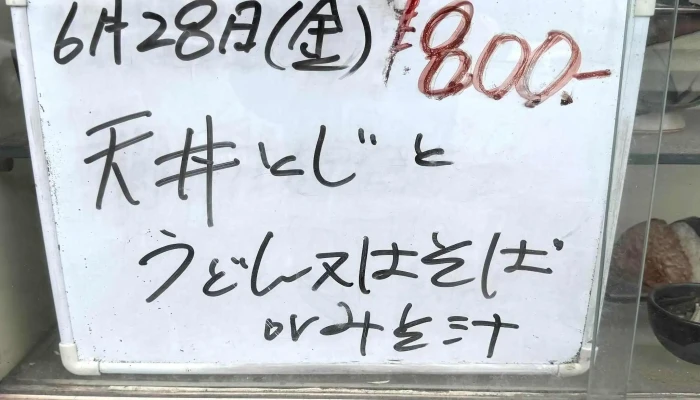 6月28日(金) ¥800.-
天丼とじと
うどん又はそば
orみそ汁